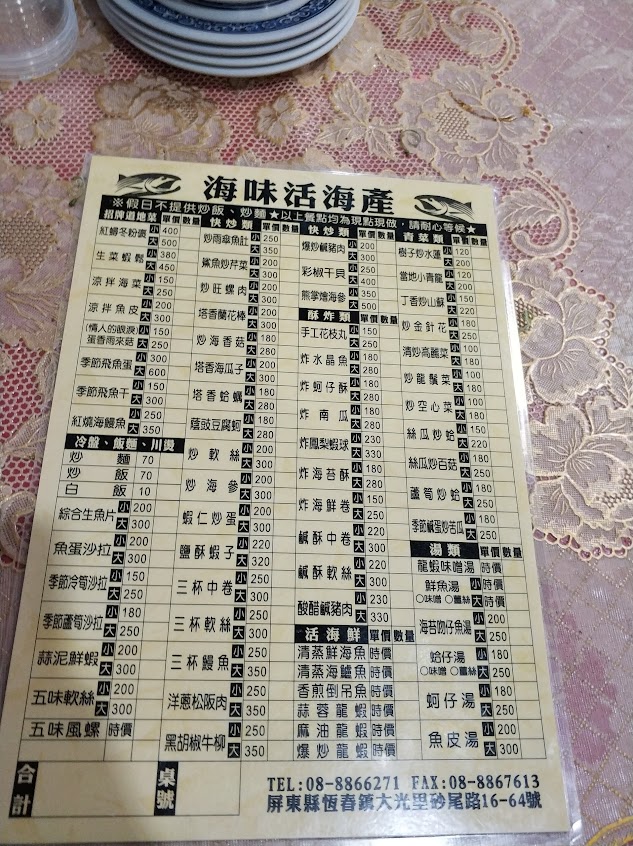 海味活海產
※假日不提供炒飯、炒麵★以上餐點均為現點現做,請耐心等候★
招牌道地菜 單價 數量
紅蟳冬粉煲 小 400 大 500
生菜蝦鬆 小 380 大 450
涼拌海菜 小 150 大 250
涼拌魚皮 小 200 大 300
(情人的眼淚)蛋香雨來菇 小 150 大 250
季節飛魚蛋 小 300 大 600
季節飛魚干 小 150 大 300
紅燒海鰻魚 小 250 大 350
冷盤、飯麵、川燙
炒麵 70
炒飯 70
白飯 10
綜合生魚片 小 200 大 300
魚蛋沙拉 小 200 大 300
季節冷筍沙拉 小 150 大 250
季節蘆筍沙拉 小 180 大 250
蒜泥鮮蝦 小 200 大 300
五味軟絲 小 200 大 300
五味風螺 時價
快炒類 單價 數量
炒雨傘魚肚 小 250 大 300
鯊魚炒芹菜 小 200 大 300
炒旺螺肉 小 200 大 300
塔香蘭花棒 小 200 大 300
炒海香菇 小 180 大 280
塔香海瓜子 小 200 大 300
塔香蛤蠣 小 180 大 280
蔭豉豆腐蚵 小 180 大 280
炒軟絲 小 200 大 300
炒海參 小 200 大 300
蝦仁炒蛋 小 200 大 300
鹽酥蝦子 小 220 大 320
三杯中卷 小 250 大 300
三杯軟絲 小 250 大 300
三杯鰻魚 小 250 大 350
洋蔥松阪肉 小 250 大 350
黑胡椒牛柳 小 250 大 350
快炒類 單價 數量
爆炒鹹豬肉 小 200 大 300
彩椒干貝 小 250 大 350
熊掌燴海參 小 400 大 500
酥炸類 單價 數量
手工花枝丸 小 150 大 250
炸水晶魚 小 180 大 280
炸蚵仔酥 小 180 大 280
炸南瓜 小 180 大 280
炸鳳梨蝦球 小 230 大 330
炸海苔酥 小 180 大 280
炸海鮮卷 小 150 大 250
鹹酥中卷 小 220 大 300
鹹酥軟絲 小 220 大 300
酸醋鹹豬肉 小 230 大 330
活海鮮 單價 數量
清蒸鮮海魚 時價
清蒸海鱸魚 時價
香煎倒吊魚 時價
蒜蓉龍蝦 時價
麻油龍蝦 時價
爆炒龍蝦 時價
青菜類 單價 數量
樹子炒水蓮 小 120 大 200
當地小青龍 小 120 大 200
丁香炒山蘇 小 150 大 220
炒金針花 小 180 大 250
清炒高麗菜 小 100 大 180
炒龍鬚菜 小 100 大 180
炒空心菜 小 100 大 180
絲瓜炒蛤 小 150 大 220
絲瓜炒百菇 小 180 大 250
蘆筍炒蛤 小 180 大 250
季節鹹蛋炒苦瓜 小 180 大 250
湯類 單價 數量
龍蝦味噌湯 時價
鮮魚湯 ○味噌 ○薑絲 時價
海苔吻仔魚湯 小 200 大 250
蛤仔湯 ○味噌 ○薑絲 小 180 大 250
蚵仔湯 小 180 大 250
魚皮湯 小 200 大 300
合計
桌號
TEL:08-8866271 FAX:08-8867613
屏東縣恆春鎮大光里砂尾路16-64號